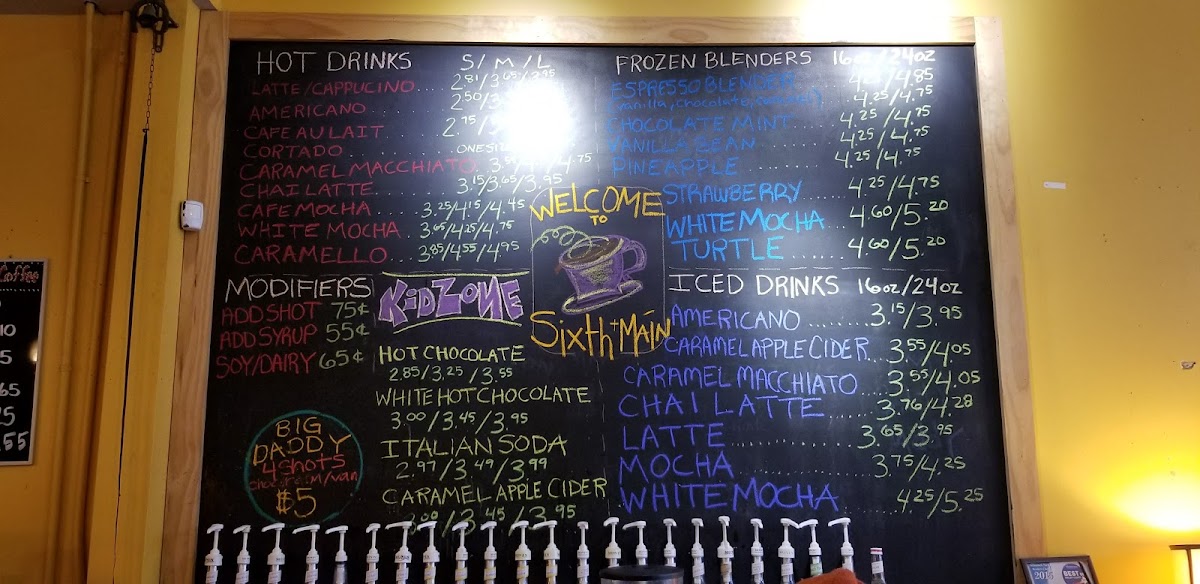 HOT DRINKS S/M/L
LATTE/CAPPUCINO 2.81/3.65/3.95
AMERICANO 2.50/
CAFE AU LAIT 2.75/
CORTADO
CARAMEL MACCHIATO 4.75
CHAI LATTE 3.15/3.65/3.95
CAFE MOCHA 3.25/4.15/4.45
WHITE MOCHA 3.65/4.25/4.75
CARAMELLO 3.85/4.55/4.95
MODIFIERS
ADD SHOT 75¢
ADD SYRUP 55¢
SOY/DAIRY 65¢
BIG
DADDY
4 SHOTS
$5
KIDZONE
HOT CHOCOLATE
2.85/3.25/3.55
WHITE HOT CHOCOLATE
3.00/3.45/3.95
ITALIAN SODA
2.97/3.49/3.99
CARAMEL APPLE CIDER
3.00/3.45/3.95
WELCOME
TO
Sixth+MAIN
FROZEN BLENDERS 16oz/24oz
ESPRESSO BLENDER 4.85
(vanilla, chocolate, 4.25/4.75
CHOCOLATE MINT 4.25/4.75
VANILLA BEAN 4.25/4.75
PINEAPPLE 4.25/4.75
STRAWBERRY 4.25/4.75
WHITE MOCHA 4.60/5.20
TURTLE 4.60/5.20
ICED DRINKS 16oz/24oz
AMERICANO 3.15/3.95
CARAMEL APPLE CIDER 3.55/4.05
CARAMEL MACCHIATO 3.55/4.05
CHAI LATTE 3.76/4.28
LATTE 3.65/3.95
MOCHA 3.75/4.25
WHITE MOCHA 4.25/5.25
Coffee